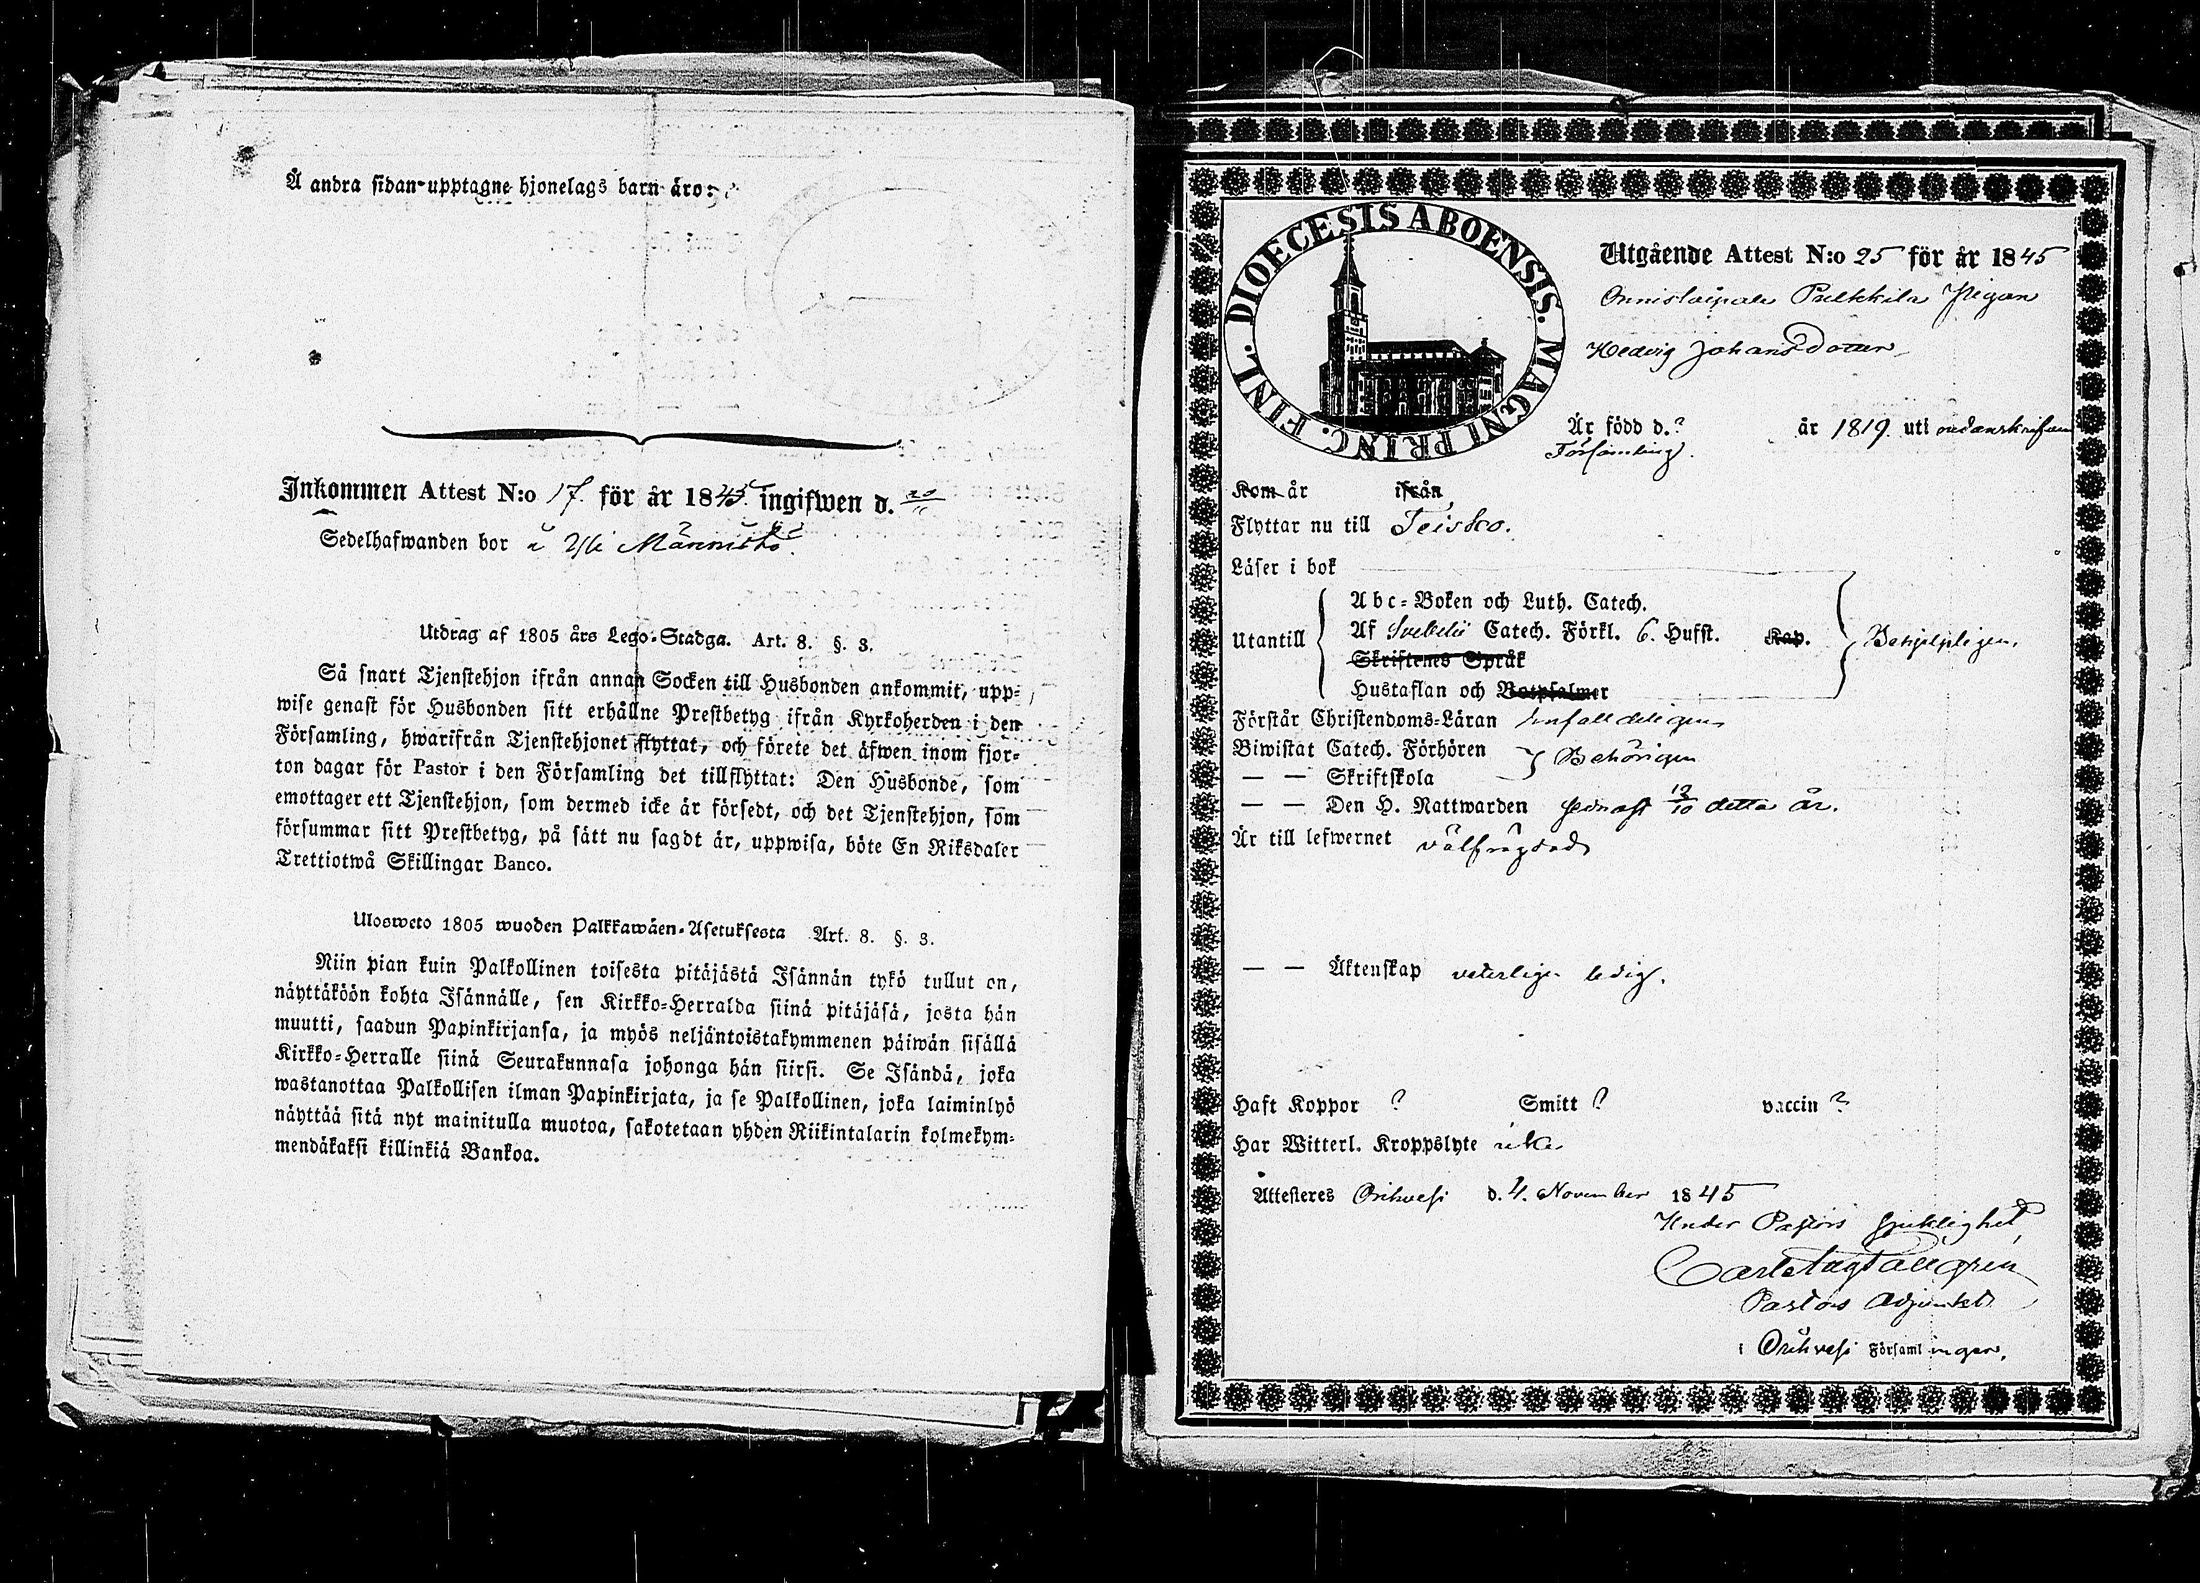 Å andra sidan upptagne hjonelags barn äro:
Inkommen Attest N:o 17. för år 1845. ingifwen d. 20/11
Sedelhafwanden bor å Yli Männistö.
Utdrag af 1805 års Lego-Stadga. Art. 8. §. 3.
Så snart Tjenstehjon ifrån annan Socken till Husbonden ankommit, upp-
wise genast för Husbonden sitt erhållne Prestbetyg ifrån Kyrkoherden i den
Församling, hwarifrån Tjenstehjonet flyttat, och förete det äfwen inom fjor-
ton dagar för Pastor i den Församling det tillflyttat: Den Husbonde, som
emottager ett Tjenstehjon, som dermed icke är försedt, och det Tjenstehjon, som
försummar sitt Prestbetyg, på sätt nu sagdt är, uppwisa, böte En Riksdaler
Trettiotwå Skillingar Banco.
Ulosweto 1805 wuoden Palkkawäen-Asetuksesta Art. 8. §. 3.
Niin pian kuin Palkollinen toisesta pitäjästä Isännän tykö tullut on,
näyttäköön kohta Isännälle, sen Kirkko-Herralda siinä pitäjäsä, josta hän
muutti, saadun Papinkirjansa, ja myös neljäntoistakymmenen päiwän sisällä
Kirkko-Herralle siinä Seurakunnasa johonga hän siirsi. Se Isändä, joka
wastanottaa Palkollisen ilman Papinkirjata, ja se Palkollinen, joka laiminlyö
näyttää sitä nyt mainitulla muotoa, sakotetaan yhden Riikintalarin kolmekym-
mendäkaksi killinkiä Bankoa.
DIOECESIS ABOENSIS. MAGNI PRINC. FINL.
Utgående Attest N:o 25 för år 1845
Onnistaipale Pukkila Pigan
Hedvig Johansdotter
Är född d. ? år 1819. uti ondanskrifven
Församling.
Kom år ifrån
Flyttar nu till Teisko.
Läser i bok
Abc-Boken och Luth. Catech.
Utantill Af Svebelii Catech. Förkl. 6. Husst. Kap. Behjelpligen.
Skriftenes Språk
Hustaflan och Botpsalmer
Förstår Christendoms-Läran enfalldeligen
Biwistat Catech. Förhören Behörigen
— — Skriftskola
— — Den H. Nattwarden senast 12/10 detta år.
Är till lefwernet välfrägdad
— — Äktenskap veterligen ledig.
Haft Koppor ? Smitt ? vaccin ?
Har Witterl. Kroppslyte icke
Attesteres Orihvesi d. 4. November 1845
Under Pastors sjuklighet,
Carl Aug Tallgrén
Pastors Adjunkt
i Orihvesi Församlingen.